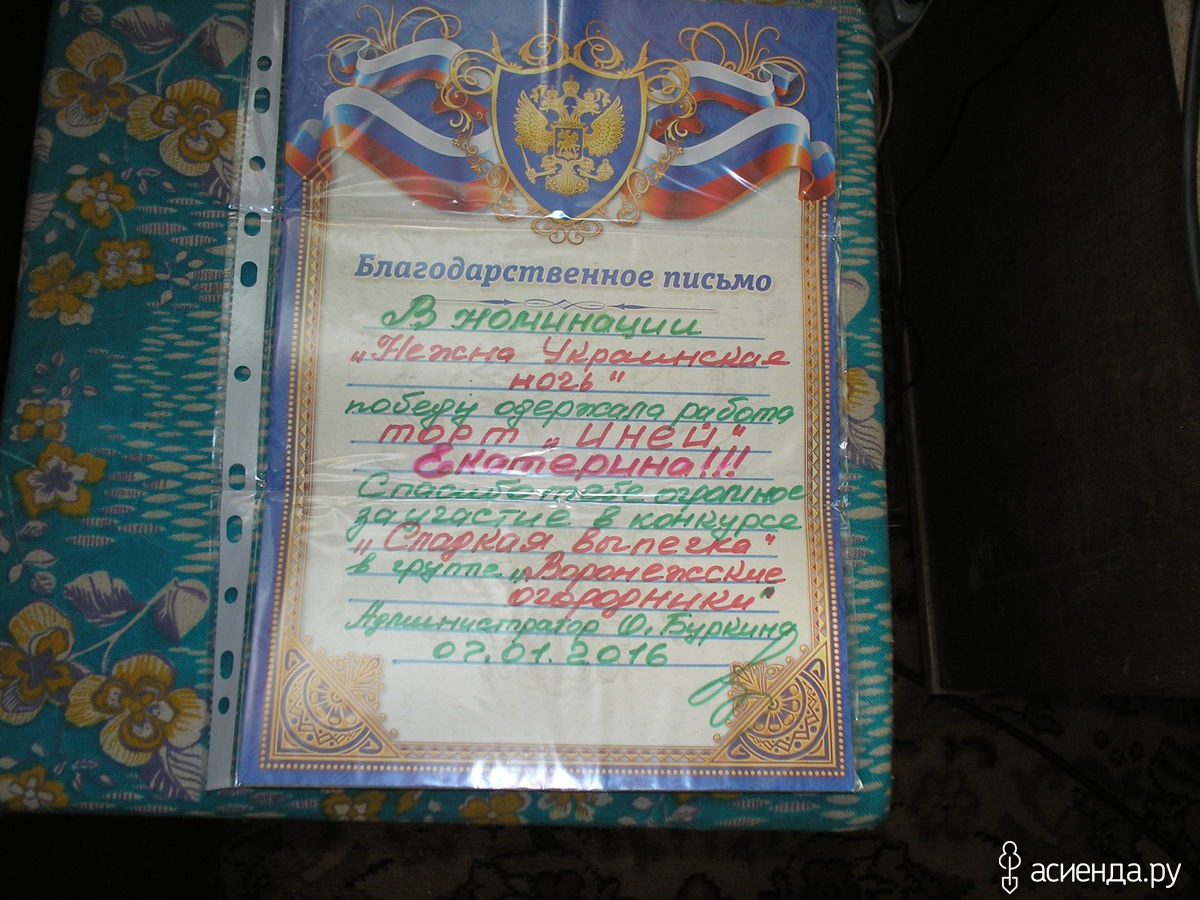 Благодарственное письмо
В номинации
„Нежна Украинская
ночь"
победу одержала работа
торт „Иней"
Екатерина!!!
Спасибо тебе огромное
за участие в конкурсе
„Сладкая выпечка"
в группе „Воронежские
огородники"
Администратор О. Буркина
07.01.2016
асиенда.ру